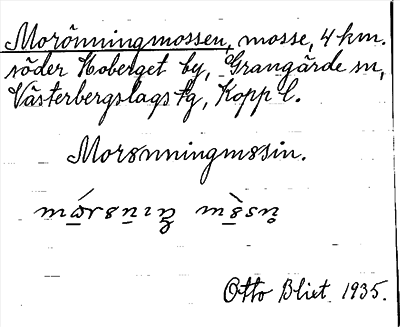 Morönningmossen, mosse, 4 km.
söder Hoberget by, Grangärde sn,
Västerbergslags tg, Kopp l.
Morønningmøsin.
Otto Blixt 1935.